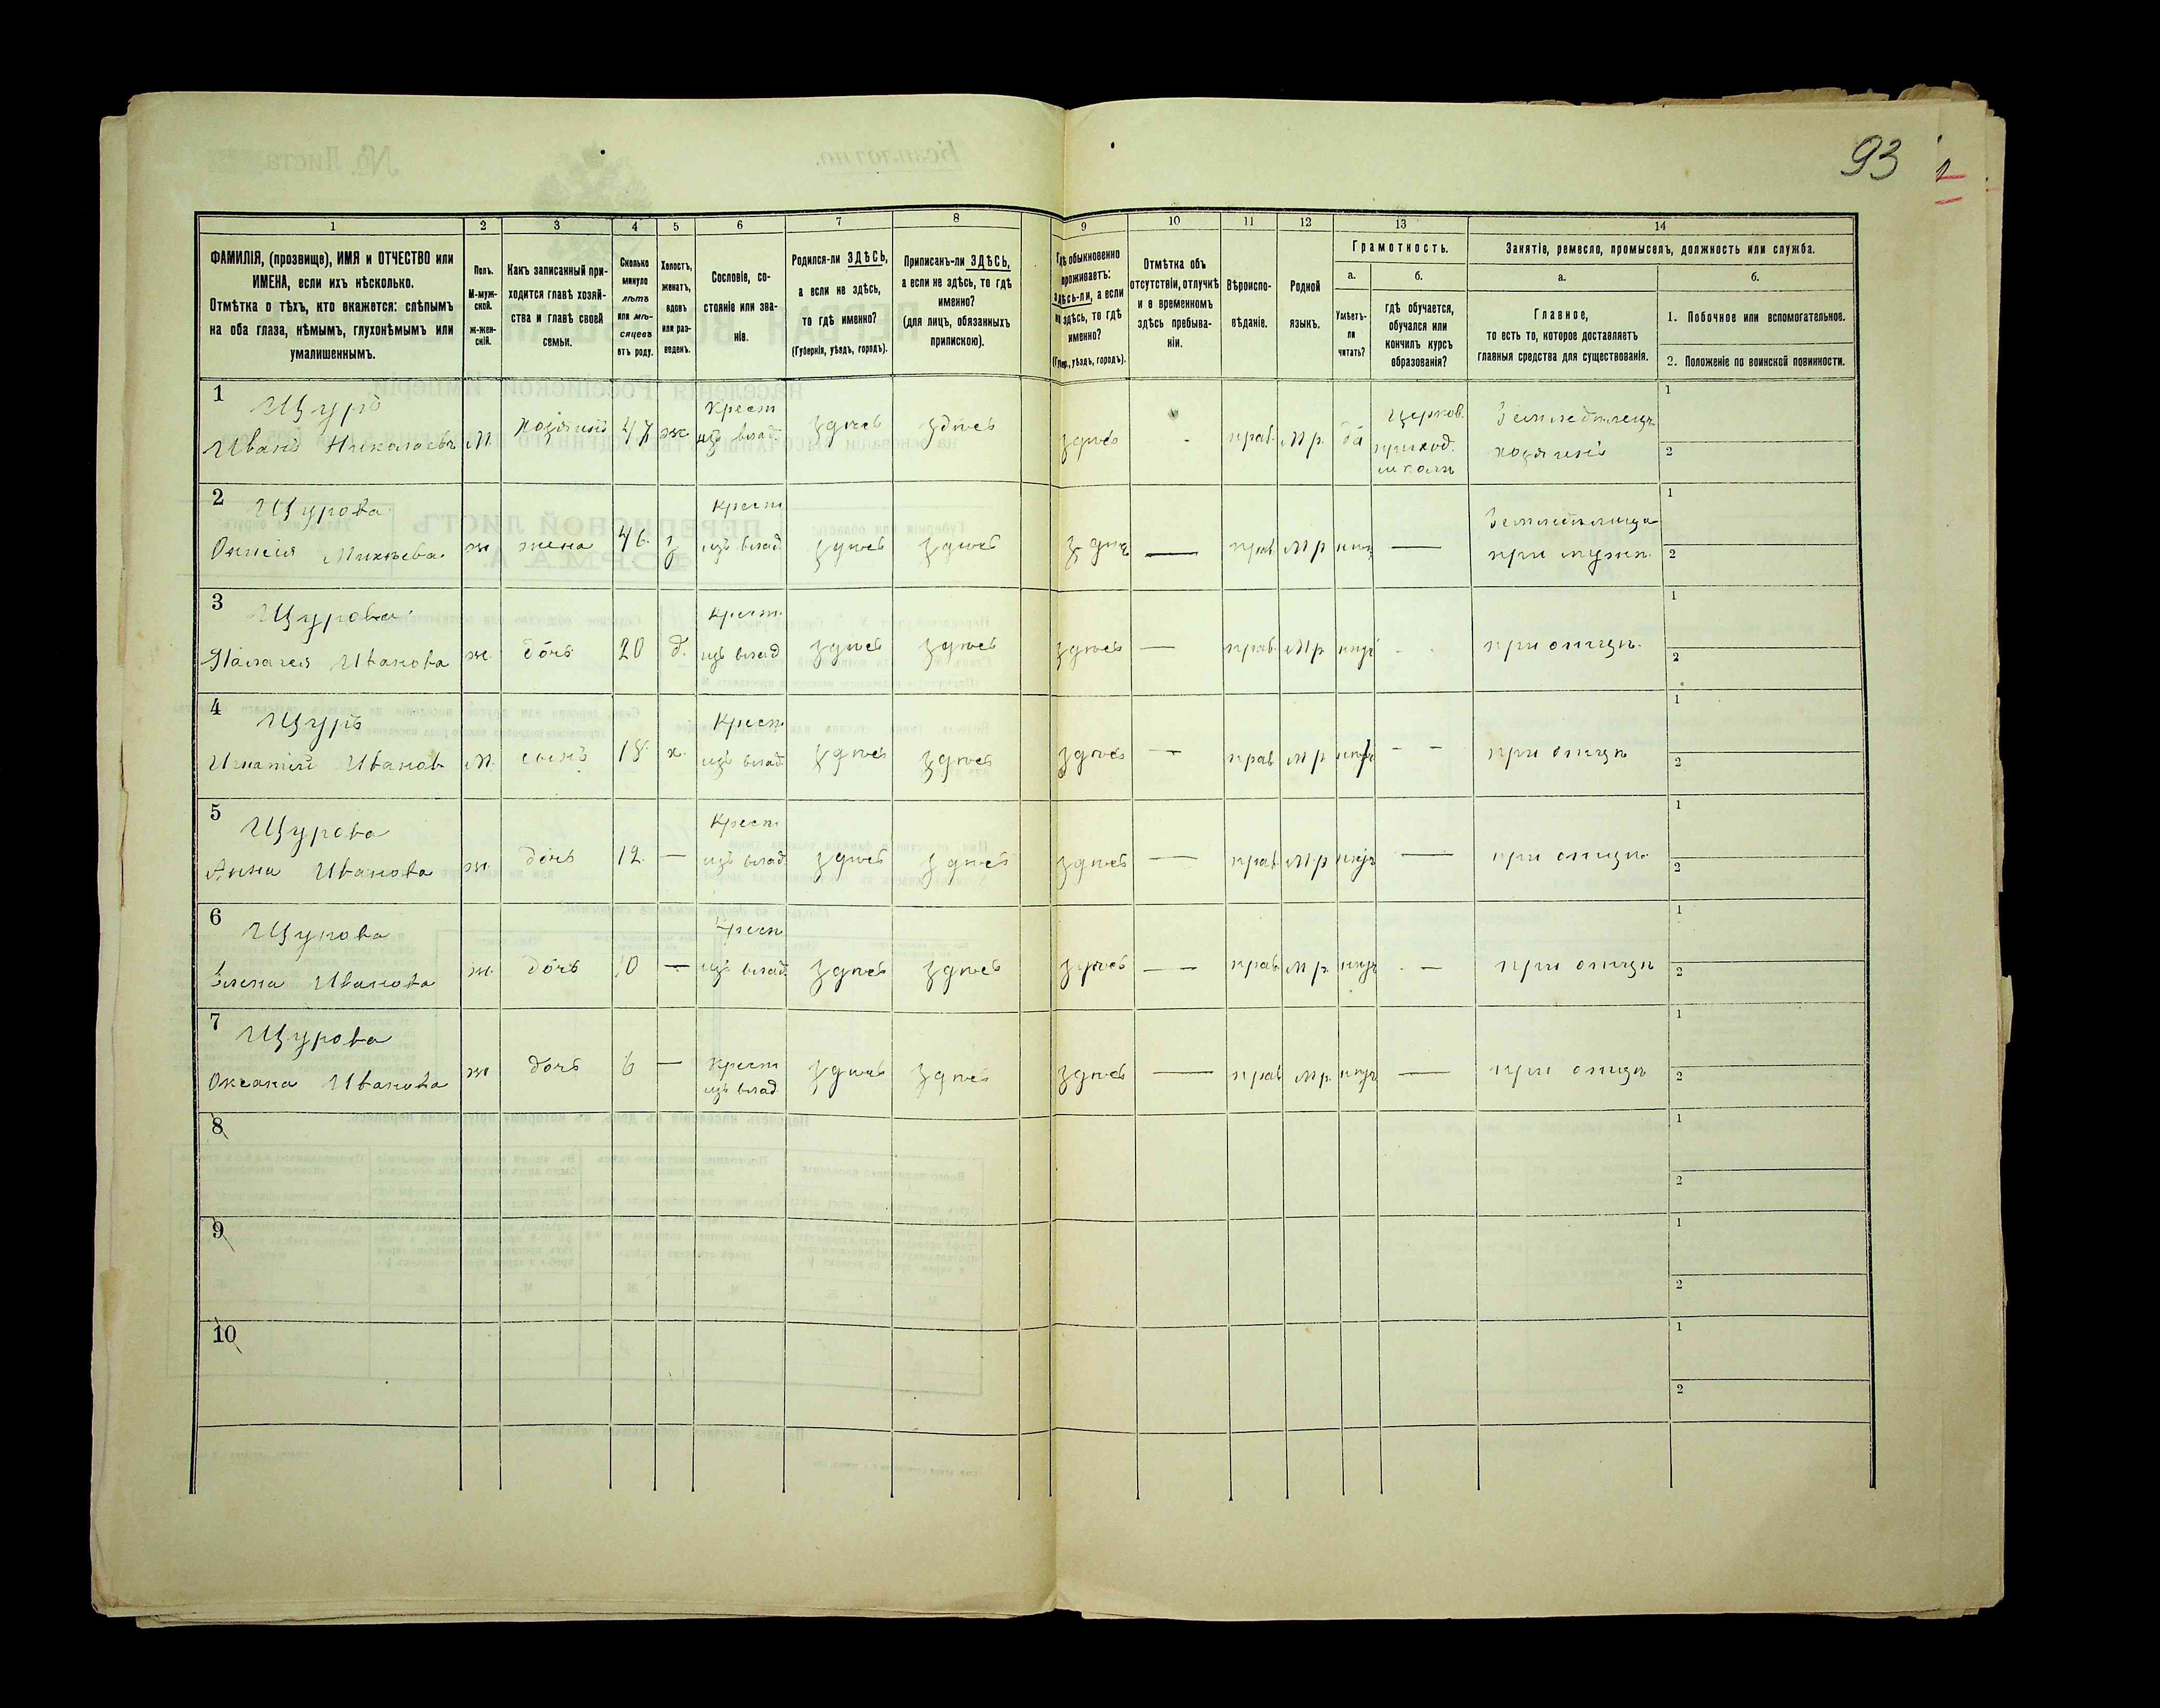 93
1
1 2 3 4 5 6 7 8 9 10 11 12 13 14
ФАМИЛІЯ, (прозвище), ИМЯ и ОТЧЕСТВО или
ИМЕНА, если ихъ нѣсколько.
Отмѣтка о тѣхъ, кто окажется: слѣпымъ
на оба глаза, нѣмымъ, глухонѣмымъ или
умалишеннымъ.
Полъ.
М-муж-
ской.
ж-жен-
скій.
Какъ записанный при-
ходится главѣ хозяй-
ства и главѣ своей
семьи.
Сколько
минуло
лѣтъ
или мѣ-
сяцевъ
отъ роду.
Холостъ,
женатъ,
вдовъ
или раз-
веденъ.
Сословіе, со-
стояніе или зва-
ніе.
Родился-ли ЗДѢСЬ,
а если не здѣсь,
то гдѣ именно?
(Губернія, уѣздъ, городъ).
Приписанъ-ли ЗДѢСЬ,
а если не здѣсь, то гдѣ
именно?
(для лицъ, обязанныхъ
припискою).
Гдѣ обыкновенно
проживаетъ:
здѣсь-ли, а если
не здѣсь, то гдѣ
именно?
(Губер., уѣздъ, городъ).
Отмѣтка объ
отсутствіи, отлучкѣ
и о временномъ
здѣсь пребыва-
ніи.
Вѣроиспо-
вѣданіе.
Родной
языкъ.
Грамотность.
а.
Умѣетъ-
ли
читать?
б.
гдѣ обучается,
обучался или
кончилъ курсъ
образованія?
Занятіе, ремесло, промыселъ, должность или служба.
а.
Главное,
то есть то, которое доставляетъ
главныя средства для существованія.
б.
1. Побочное или вспомогательное.
2. Положеніе по воинской повинности.
1 Щуръ Крест церков. Земледѣлецъ 1
Иванъ Николаевъ М. хозяинъ 47 ж. изъ влад. здѣсь здѣсь здѣсь - прав. М р. да приход. хозяинъ 2
школѣ
2 Щурова Крест Земледѣлица 1
Михѣева ж жена 46. з изъ влад. здѣсь здѣсь — прав М р — при мужѣ 2
3 Щурова Крест. 1
Иванова ж. дочь 20 д. изъ влад здѣсь здѣсь здѣсь — прав. М р. - - при отцѣ. 2
4 Щуръ Крест 1
Игнатій Иванов М. сынъ 18. х. изъ влад. здѣсь здѣсь здѣсь — прав М р — — при отцѣ 2
5 Щурова Крест 1
Анна Иванова ж. дочь 12. — изъ влад. здѣсь здѣсь здѣсь — прав. М.р — при отцѣ. 2
6 Щурова Крест 1
Елена Иванова ж. дочь 10 — изъ влад. здѣсь здѣсь здѣсь — — прав. М р. - — при отцѣ 2
7 Щурова 1
Оксана Иванова ж дочь 6 — Крест здѣсь здѣсь здѣсь — прав М р. — при отцѣ 2
изъ влад
8 1
2
9 1
2
10 1
2